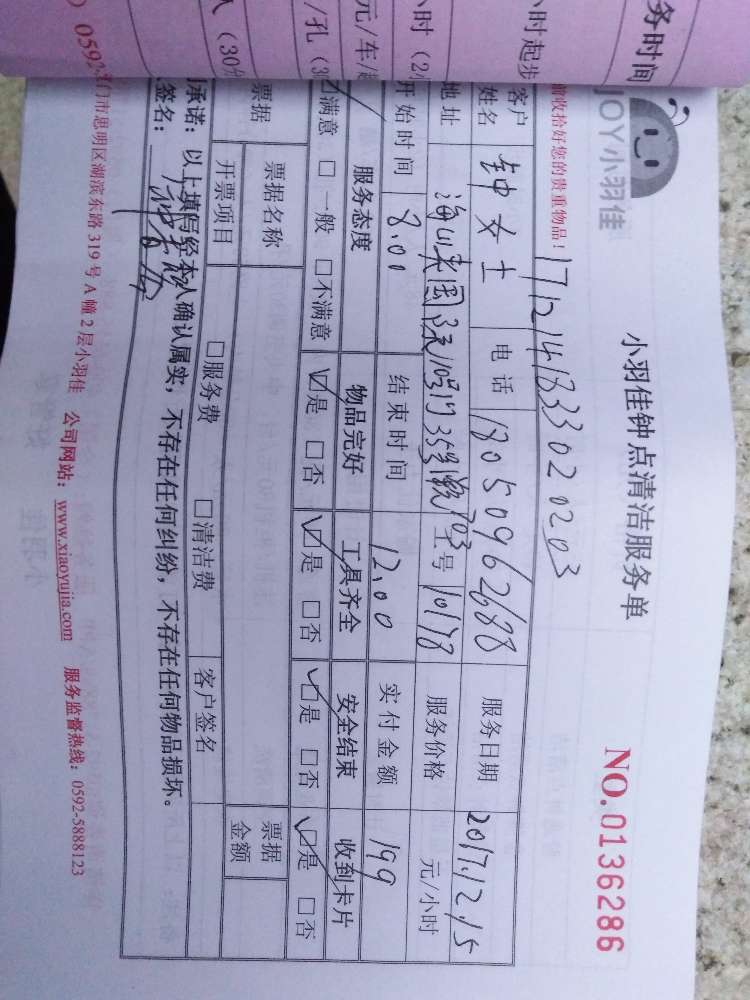 务时间
小时起步
小时（2小
元/车/
/孔（3
（30分
JOY小羽佳
小羽佳钟点清洁服务单
NO.0136286
前收拾好您的贵重物品！
17121413330202 03
客户姓名 钟女士 电话 18050962688 服务日期 2017.12.15
地址 703 工号 10178 服务价格 元/小时
开始时间 8.00 结束时间 12.00 实付金额 199
服务态度 物品完好 工具齐全 安全结束 收到卡片
☑满意 □一般 □不满意 ☑是 □否 ☑是 □否 ☑是 □否 ☑是 □否
票据 票据名称 票据金额
开票项目 □服务费 □清洁费 客户签名
承诺：以上填写经本人确认属实，不存在任何纠纷，不存在任何物品损坏。
签名：
门市思明区湖滨东路319号A幢2层小羽佳 公司网站：www.xiaoyujia.com 服务监督热线：0592-5888123
0592-